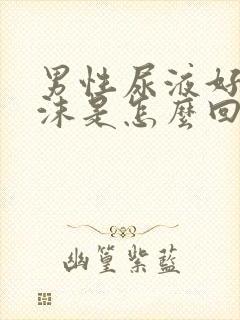 男性尿液好
沫是怎麼回
幽篁紫藍